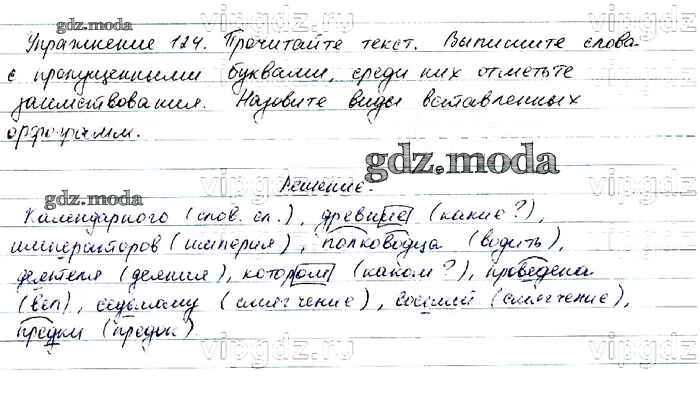 gdz.moda
vipgdz.ru
vipgdz.ru
Упражнение 124. Прочитайте текст. Выпишите слова
с пропущенными буквами, среди них отметьте
заимствования. Назовите виды вставленных
орфограмм.
gdz.moda
Решение.
gdz.moda
vipgdz.ru
vipgdz.ru
Календарного (слов. сл.), древние (какие?),
императоров (империя), полководца (водить),
деятеля (деяния), котором (каком?), проведена
седьмому (смягчение), (смягчение),
предки
vipgdz.ru
vipgdz.ru